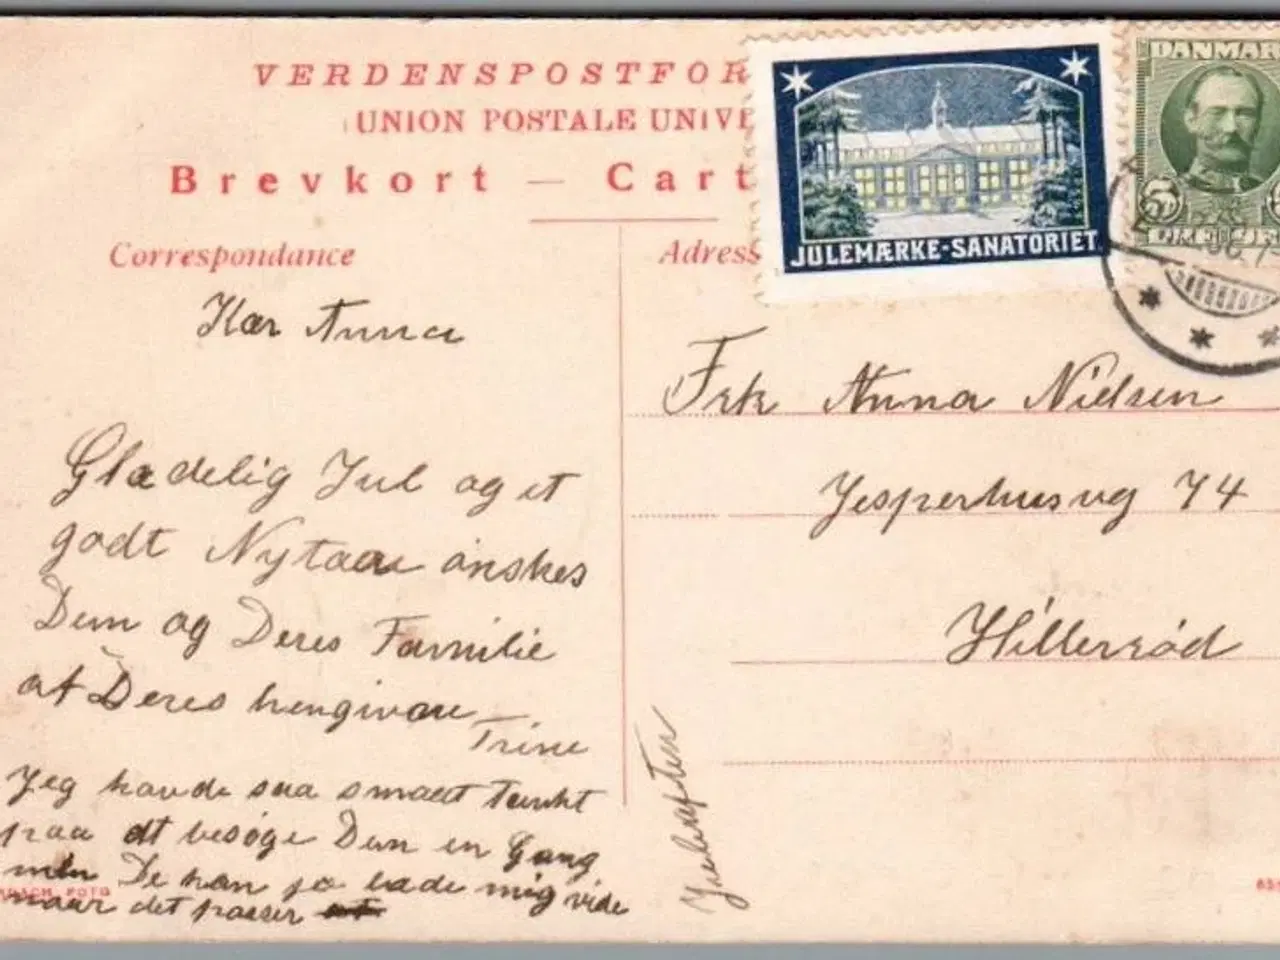 VERDENSPOSTFOR
UNION POSTALE UNIVE
Brevkort — Cart
Correspondance
Adress
JULEMÆRKE-SANATORIET
DANMAR
5
Kær Anna
Glædelig Jul og et
godt Nytaar ønskes
Dem og Deres Familie
af Deres hengivne
Trine
Jeg havde saa smaatt tænkt
paa at besøge Dem en Gang
men De kan jo lade mig vide
naar det passer
Frk Anna Nielsen
Jesperhusvej 74
Hillerød
Juleaften
FOTO